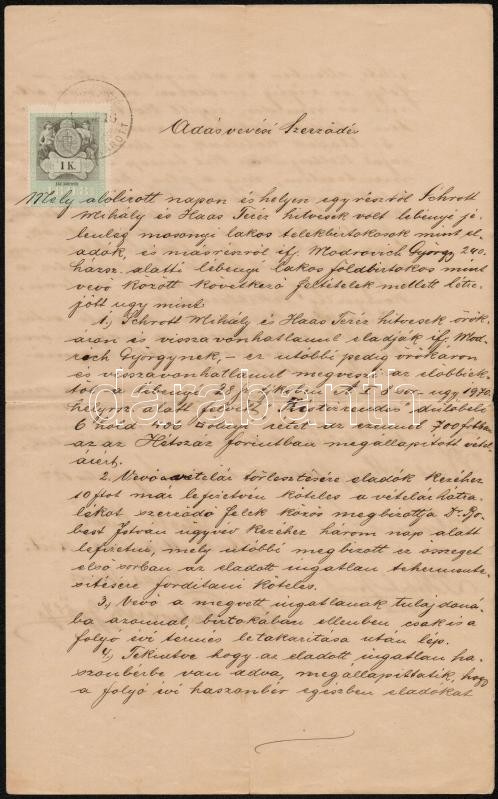 Adásvevési Szerződés
1 K.
Mely alólirott napon és helyen egyrészről Schrott
Mihály és Haas Teréz hitvesek volt lebényi je-
lenleg mosonyi lakos telekbirtokosok mint el-
adók, és másrészről if. Modrovich György 240
házsz. alatti lébenyi lakos földbirtokos mint
vevő között következő feltételek mellett létre-
jött ugy mint:
1., Schrott Mihály és Haas Teréz hitvesek örök-
áron és visszavonhatlanul eladják if. Mod-
rich Györgynek, – ez utóbbi pedig örökáron
és visszavonhatlanul megveszi az előbbiek-
től a lébenyi 28 sz. tjkvben A I 8 sor. ugy. 1970.
helyrsz. alatt
6 hold 400 öl rétet az azonnal 700 frtban
az az Hétszáz forintban megállapitott vétel-
árért.
2. Vevő a vételár törlesztésére eladók kezéhez
10 ftot már lefizetvén köteles a vételár hátra-
lékot szerződő felek közös megbizottja Dr.
István ügyvéd kezéhez három nap alatt
lefizetni, mely utóbbi megbizott ez összeget
első sorban az eladott ingatlan tehermente-
sitésére forditani köteles.
3., Vevő a megvett ingatlanak tulajdoná-
ba azonnal, birtokában ellenben csakis a
folyó évi termés letakaritása után lép.
4., Tekintve hogy az eladott ingatlan ha-
szonbérbe van adva, megállapittatik, hogy
a folyó évi haszonbér egészben eladókat
darabanth